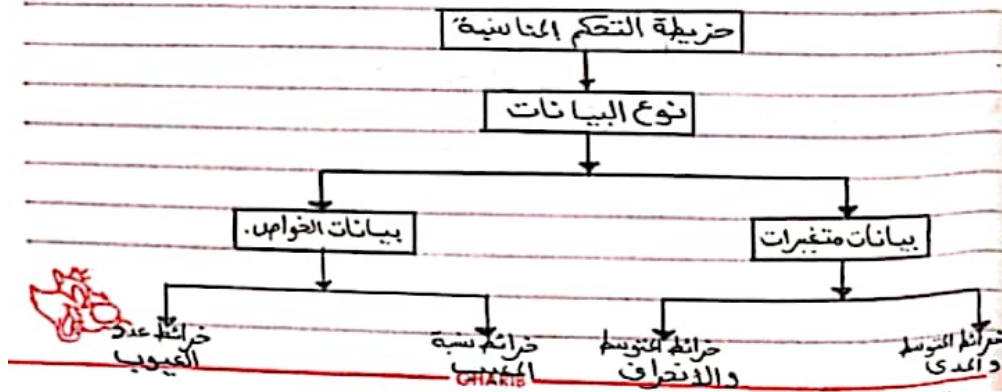 خريطة التحكم المناسبة
نوع البيانات
بيانات متغيرات
بيانات الخواص.
خرائط المتوسط
والمدى
خرائط المتوسط
والانحراف
خرائط نسبة
المعيب
خرائط عدد
العيوب
GHARIB